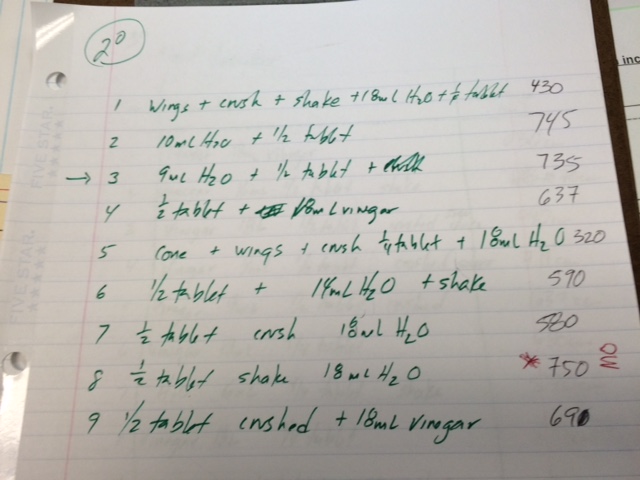 2°
inc
1 wings + crush + shake + 18mL H2O + 1/2 tablet 430
2 10mL H2O + 1/2 tablet 745
→ 3 9mL H2O + 1/2 tablet + 735
4 1/2 tablet + 18mL vinegar 637
5 cone + wings + crush 1/4 tablet + 18mL H2O 320
6 1/2 tablet + 14mL H2O + shake 590
7 1/2 tablet crush 18mL H2O 580
8 1/2 tablet shake 18mL H2O * 750
9 1/2 tablet crushed + 18mL vinegar 690
FIVE STAR.
FIVE STAR.